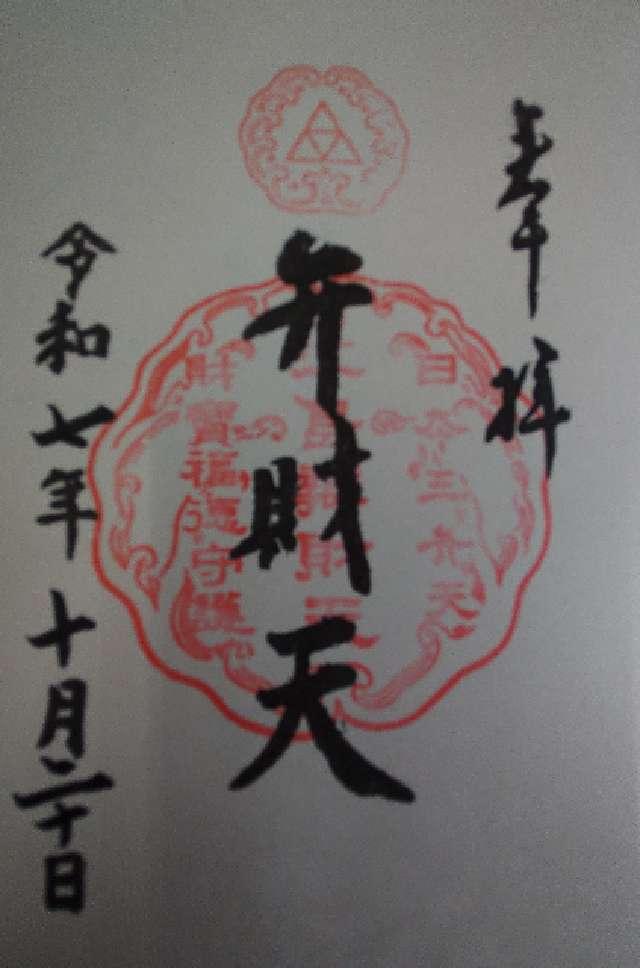 奉拝
日本三弁天
弁財天
財寶福徳守護
令和七年十月二十日